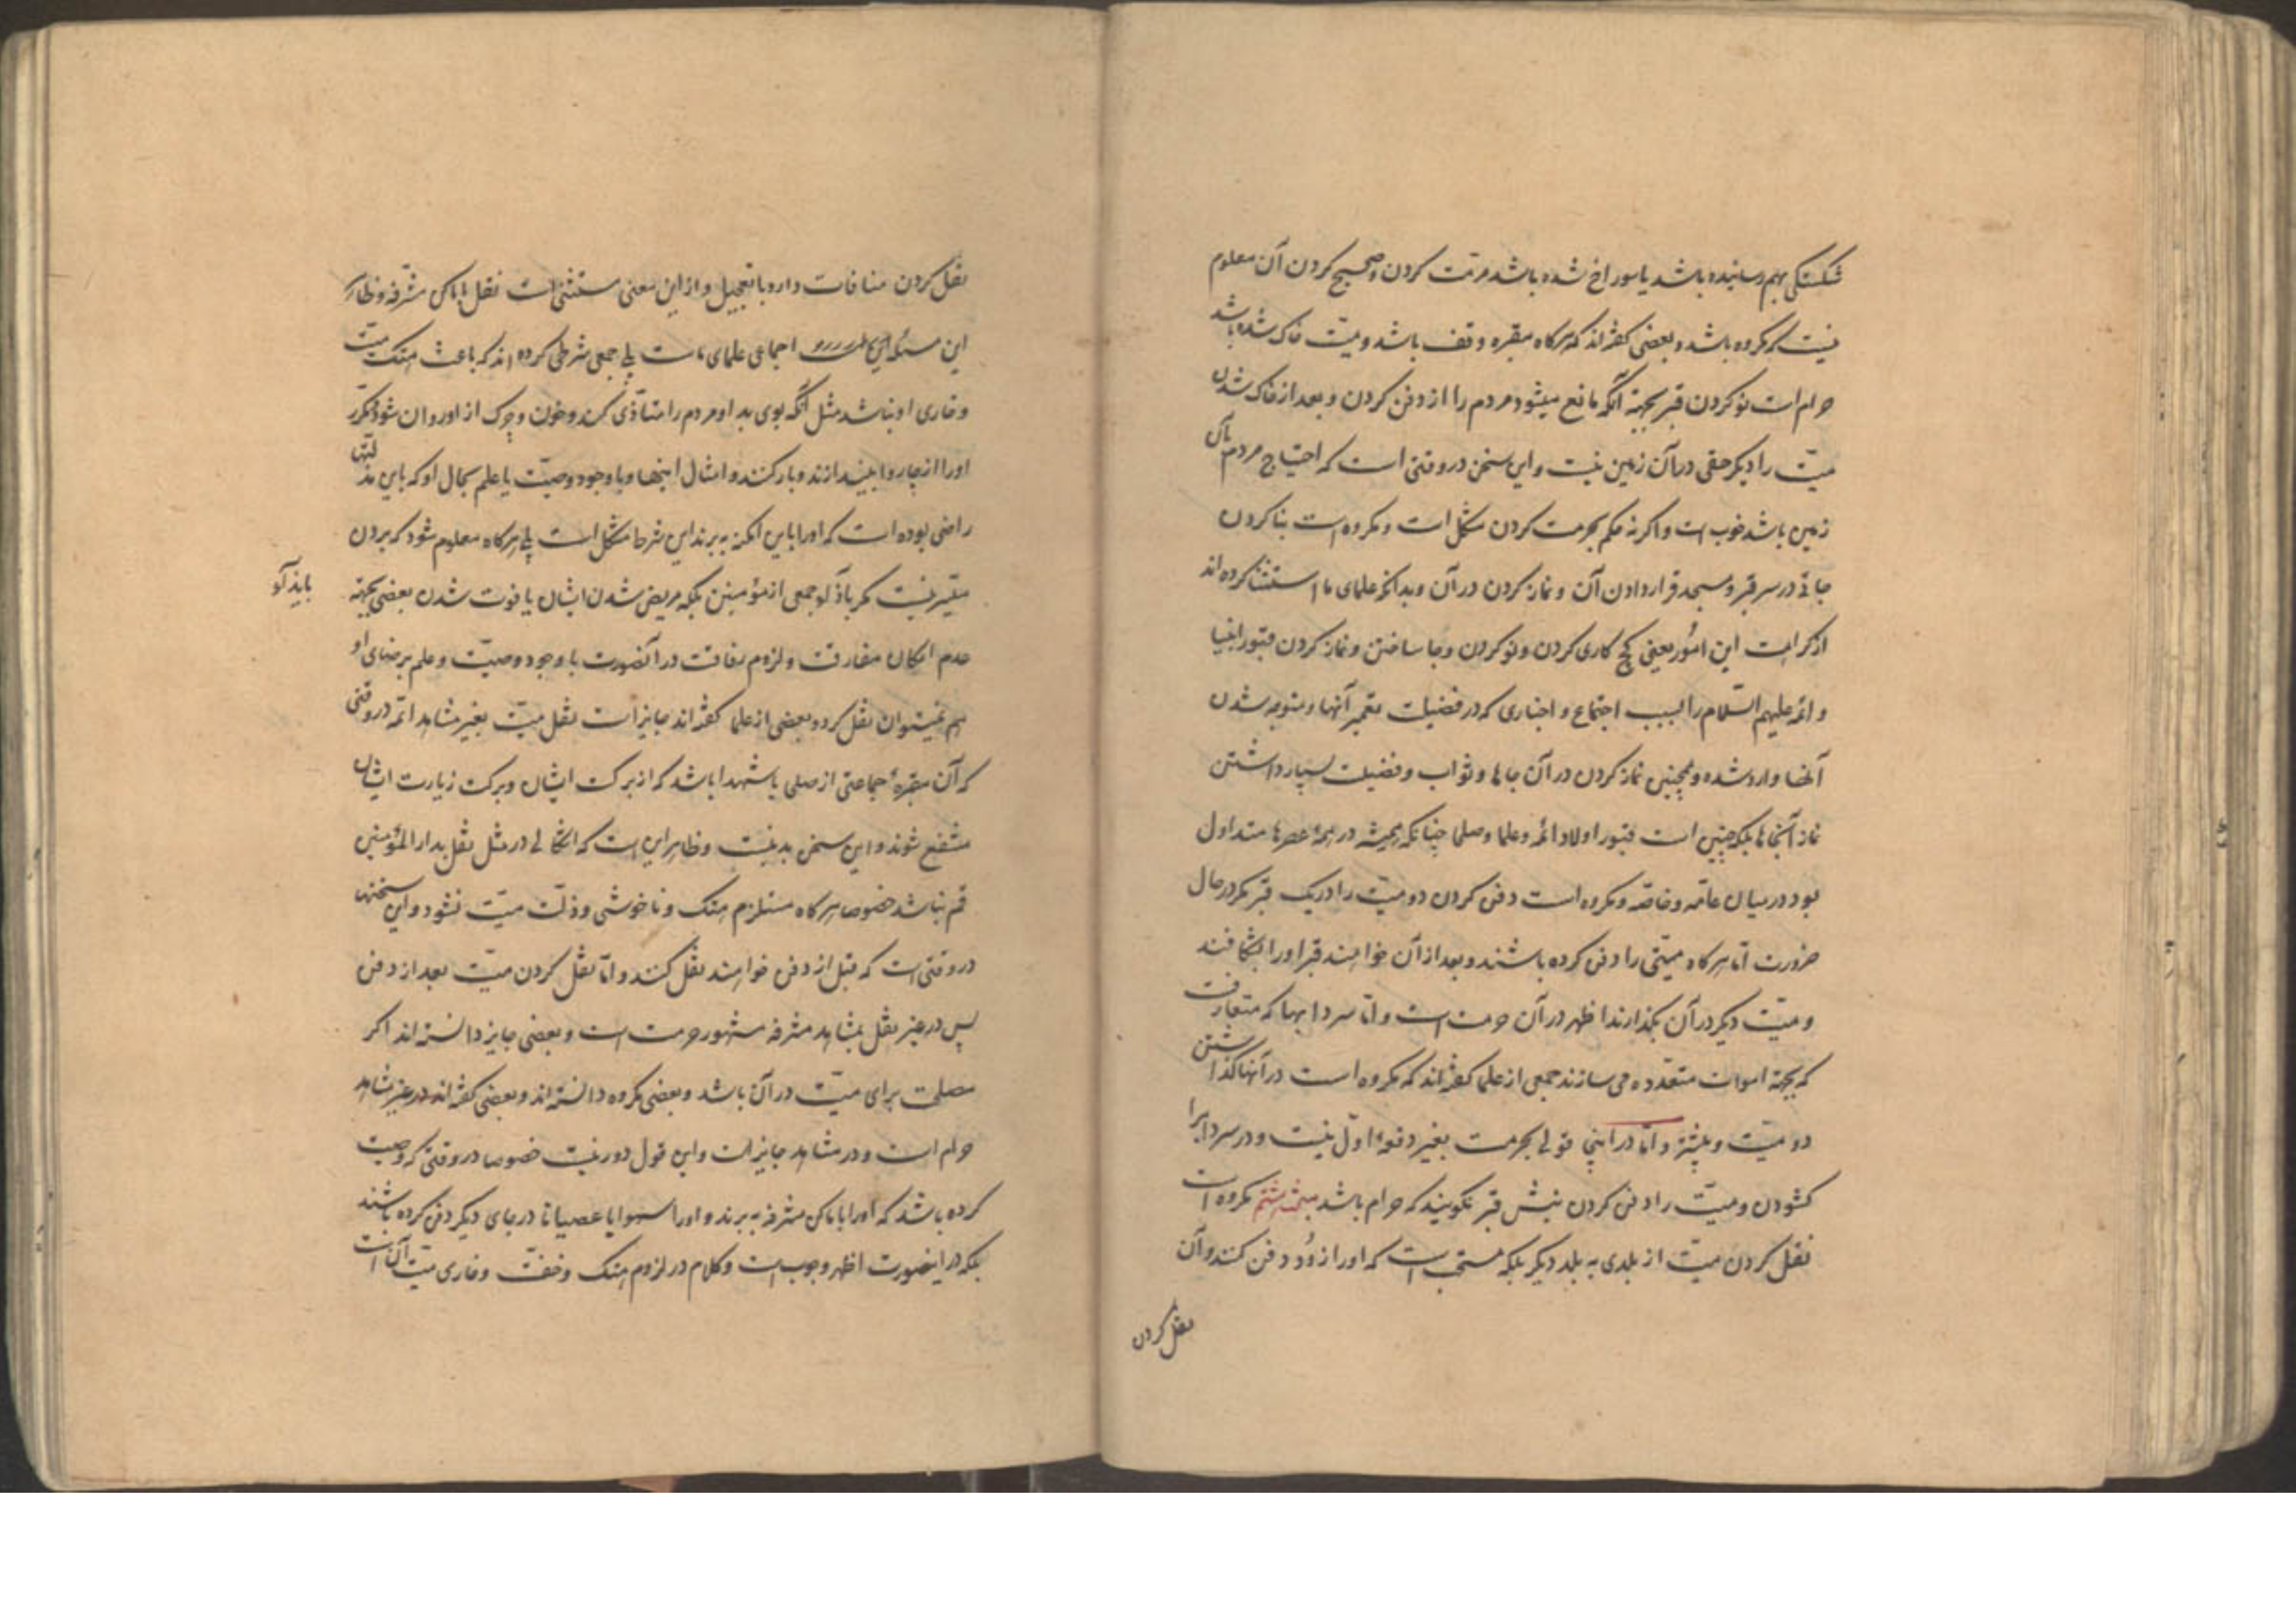 شکستکی بهم رسانیده باشد یا سوراخ شده باشد مرمت کردن و صحیح کردن آن معلوم
نیست که مکروه باشد و بعضی کفته‌اند که هرکاه مقبره وقف باشد و میّت خاک شده باشد
حرام است نو کردن قبر بجهة آنکه مانع میشود مردم را از دفن کردن و بعد از خاک شدن
میّت را دیکر حقی در آن زمین نیست و این سخن در وقتی است که احتیاج مردم بآن
زمین باشد خوب است و اکر نه حکم بحرمت کردن مشکل است و مکروه است بنا کردن
جائی در سر قبر و مسجد قرار دادن آن و نماز کردن در آن و بدانکه علمای ما استثنا کرده‌اند
از کراهت این امور یعنی کچ کاری کردن و نو کردن و جا ساختن و نماز کردن قبور انبیا
و ائمه علیهم السّلام را بسبب اجتماع و اخباری که در فضیلت تعمیر آنها و متوجه شدن
آنها وارد شده و همچنین نماز کردن در آن جاها و ثواب و فضیلت بسیار داشتن
نماز آنجاها بلکه چنین است قبور اولاد ائمه و علما و صلحا چنانکه همیشه در همهٔ عصرها متداول
بود در میان عامّه و خاصّه و مکروه است دفن کردن دو میّت را در یک قبر مکر در حال
ضرورت امّا هرکاه میّتی را دفن کرده باشند و بعد از آن خواهند قبر او را بشکافند
و میّت دیکر در آن بکذارند اظهر در آن حرمت است و امّا سردابها که متعارفست
که بجهة اموات متعدّده می سازند جمعی از علما کفته‌اند که مکروه است در آنها کذاشتن
دو میّت و بیشتر و امّا در اینجا قولی بحرمت بغیر دفعهٔ اوّل نیست و در سرداب را
کشودن و میّت را دفن کردن نبش قبر نکویند که حرام باشد مبحث هشتم مکروه است
نقل کردن میّت از بلدی به بلد دیکر بلکه مستحب است که او را زود دفن کنند و آن
نقل کردن
نقل کردن منافات دارد با تعجیل و از این معنی مستثنی است نقل باماکن مشرّفه و ظاهر
این مسئله اجماعی علمای ماست بلی جمعی شرطی کرده‌اند که باعث هتک میّت
و خاری او نباشد مثل آنکه بوی بد او مردم را متأذّی کند و خون و چرک از او روان شود و مکرّر
او را از چاروا بیندازند و بار کنند و امثال اینها و با وجود وصیّت یا علم بحال او که باین مذلّتها
راضی بوده است که او را باین امکنه به برند این شرط مشکل است بلی هرکاه معلوم شود که بردن
میّسر نیست مکر باذیّت جمعی از مؤمنین بلکه مریض شدن ایشان یا فوت شدن بعضی بجهة
عدم امکان مفارقت و لزوم رفاقت در آنصورت با وجود وصیّت و علم برضای او
هم نمیتوان نقل کرد و بعضی از علما کفته‌اند جایز است نقل میّت بغیر مشاهد ائمّه در وقتی
که آن مقبرهٔ جماعتی از صلحا یا شهدا باشد که از برکت ایشان و برکت زیارت ایشان
منتفع شوند و این سخن بد نیست و ظاهر این است که اشکالی در مثل نقل بدار المؤمنین
قم نباشد خصوصا هرکاه مستلزم هتک و ناخوشی و ذلّت میّت نشود و این سخنها
در وقتی است که قبل از دفن خواهند نقل کنند و امّا نقل کردن میّت بعد از دفن
پس در غیر نقل بمشاهد مشرفه مشهور حرمت است و بعضی جایز دانسته‌اند اکر
مصلحت برای میّت در آن باشد و بعضی مکروه دانسته‌اند و بعضی کفته‌اند در غیر مشاهد
حرام است و در مشاهد جایز است و این قول دور نیست خصوصا در وقتی که وصیت
کرده باشد که او را باماکن مشرفه به برند و او را سهوا یا عصیانا در جای دیکر دفن کرده باشند
بلکه در اینصورت اظهر وجوب است و کلام در لزوم هتک و خفّت و خاری میّت آن است